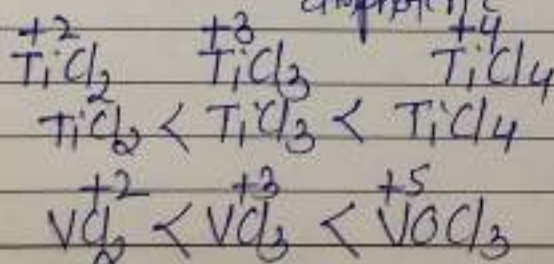 amphoteric
+2 +3 +4
TiCl2 TiCl3 TiCl4
TiCl2 < TiCl3 < TiCl4
+2 +3 +5
VCl2 < VCl3 < VOCl3